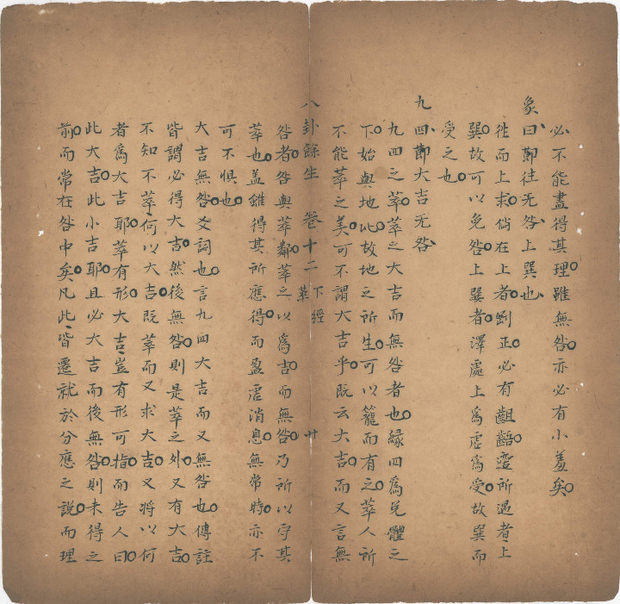 必不能盡得其理雖無咎亦必有小羞矣
象曰節往无咎上巽也
往而上求倘在上者剛正必有齟齬所遇者上
巽故可以免咎上巽者澤處上為虛為受故巽而
受之也
九四節大吉无咎
九四之萃萃之大吉而無咎者也緣四為兌體之
下始與地比故地之所生可以籠而有之萃人所
不能萃之美可不謂大吉乎既云大吉而又言無
八卦餘生 卷十二 下經 萃 廿
咎者咎與萃鄰萃之以為吉而無咎乃所以守其
萃也蓋雖得其所應得而盈虛消息無常時亦不
可不懼也
大吉無咎爻詞也言九四大吉而又無咎也傳註
皆謂必得大吉然後無咎則是萃之外又有大吉
不知不萃何以大吉既萃而又求大吉又將以何
者為大吉耶萃有形大吉豈有形可指而告人曰
此大吉此小吉耶且必大吉而後無咎則未得之
前而常在咎中矣凡此皆遷就於分應之說而理